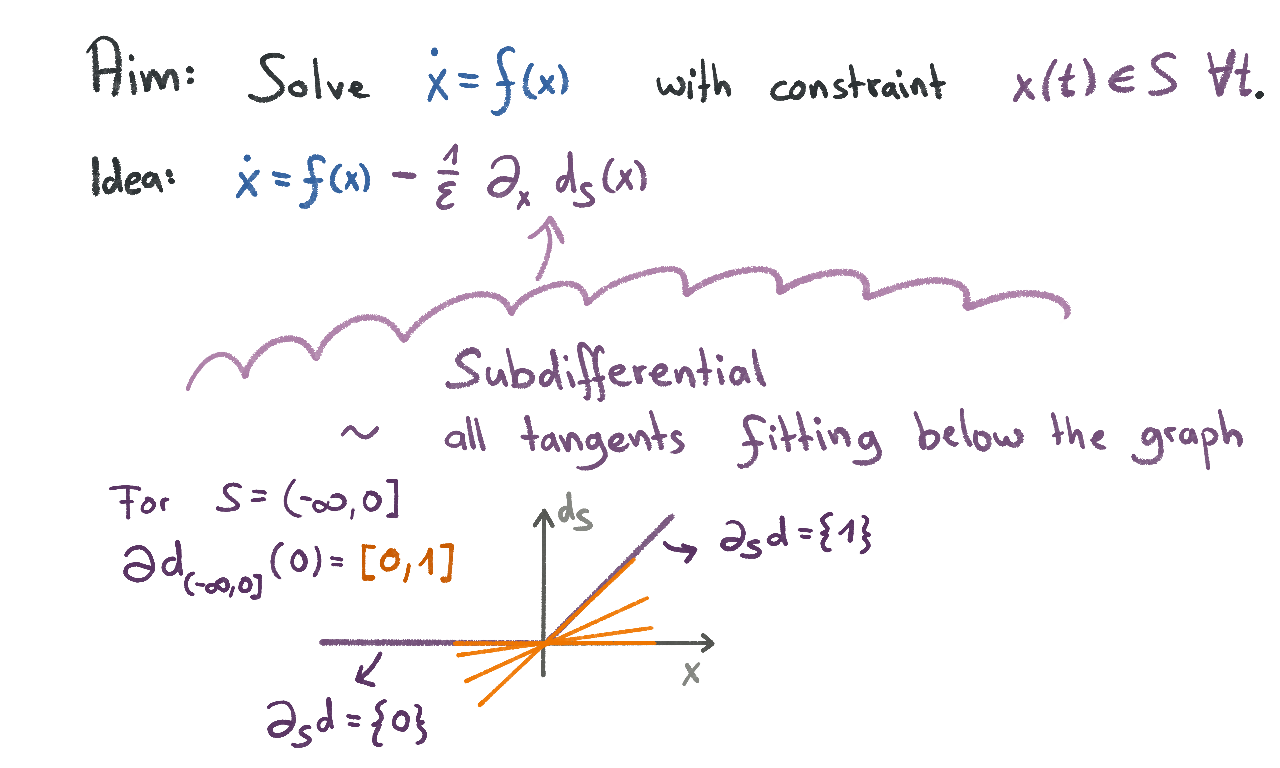 Aim: Solve ẋ = f(x) with constraint x(t) ∈ S ∀t.
Idea: ẋ = f(x) - 1/ε ∂ₓ d_S(x)
Subdifferential
~ all tangents fitting below the graph
For S = (-∞, 0]
∂d_(-∞,0](0) = [0,1]
d_S
∂_S d = {1}
x
∂_S d = {0}